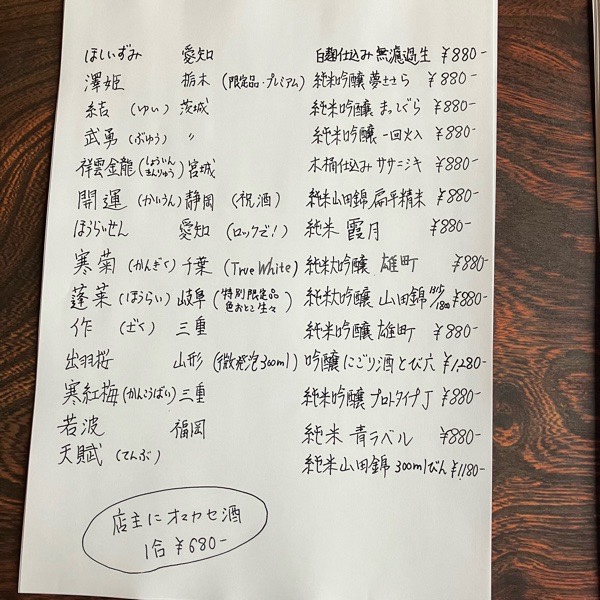 ほしいずみ 愛知 白麹仕込み 無濾過生 ¥880-
澤姫 栃木 (限定品・プレミアム) 純米吟醸 夢ささら ¥880-
結吉 (ゆい) 茨城 純米吟醸 まっしぐら ¥880-
武勇 (ぶゆう) 〃 純米吟醸 一回火入 ¥880-
祥雲金龍 (しょういんきんりゅう) 宮城 木桶仕込み ササニシキ ¥880-
開運 (かいうん) 静岡 (祝酒) 純米山田錦 扁平精米 ¥880-
ほうらいせん 愛知 (ロックで!) 純米 霞月 ¥880-
寒菊 (かんぎく) 千葉 (True White) 純米大吟醸 雄町 ¥880-
蓬莱 (ほうらい) 岐阜 (特別限定品 色おとこ 生々) 純米大吟醸 山田錦 ¥880-
作 (ざく) 三重 純米吟醸 雄町 ¥880-
出羽桜 山形 (微発泡300ml) 吟醸にごり酒とび六 ¥1,280-
寒紅梅 (かんこうばい) 三重 純米吟醸 プロトタイプJ ¥880-
若波 福岡 純米 青ラベル ¥880-
天賦 (てんぶ) 純米山田錦 300mlびん ¥1,180-
店主にオマカセ酒
1合 ¥680-